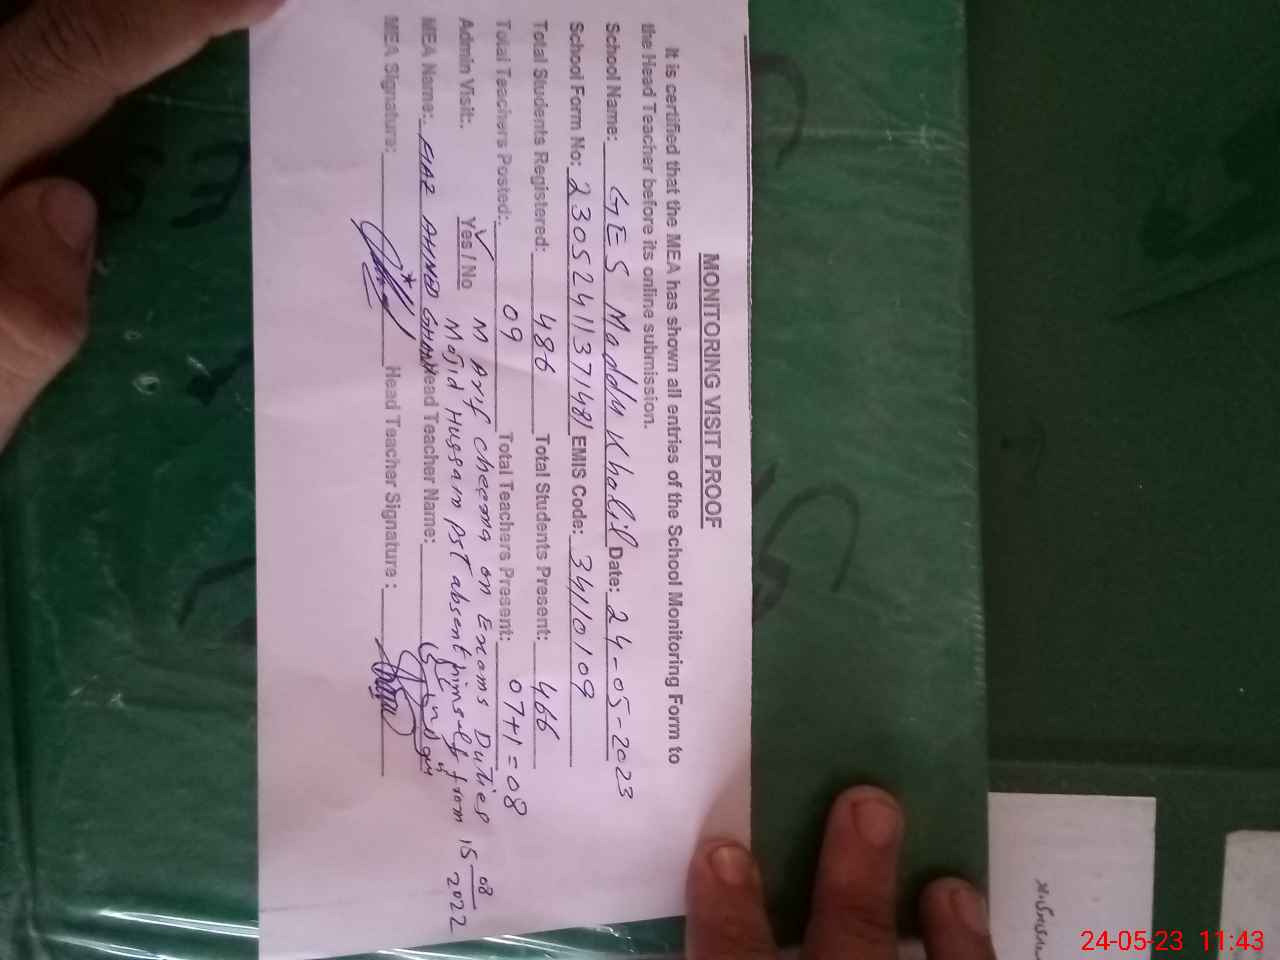 MONITORING VISIT PROOF
It is certified that the MEA has shown all entries of the School Monitoring Form to
the Head Teacher before its online submission.
School Name: GES Maddu Khalil Date: 24-05-2023
School Form No: 2305241137148/ EMIS Code: 34110109
Total Students Registered: 486 Total Students Present: 466
Total Teachers Posted: 09 Total Teachers Present: 07+1=08
Admin Visit: Yes / No M Arif Cheema on Exams Duties
Majid Hussain PST absent himself from 15 08 2022
MEA Name: EJAZ AHMED Head Teacher Name:
MEA Signature: Head Teacher Signature:
24-05-23 11:43